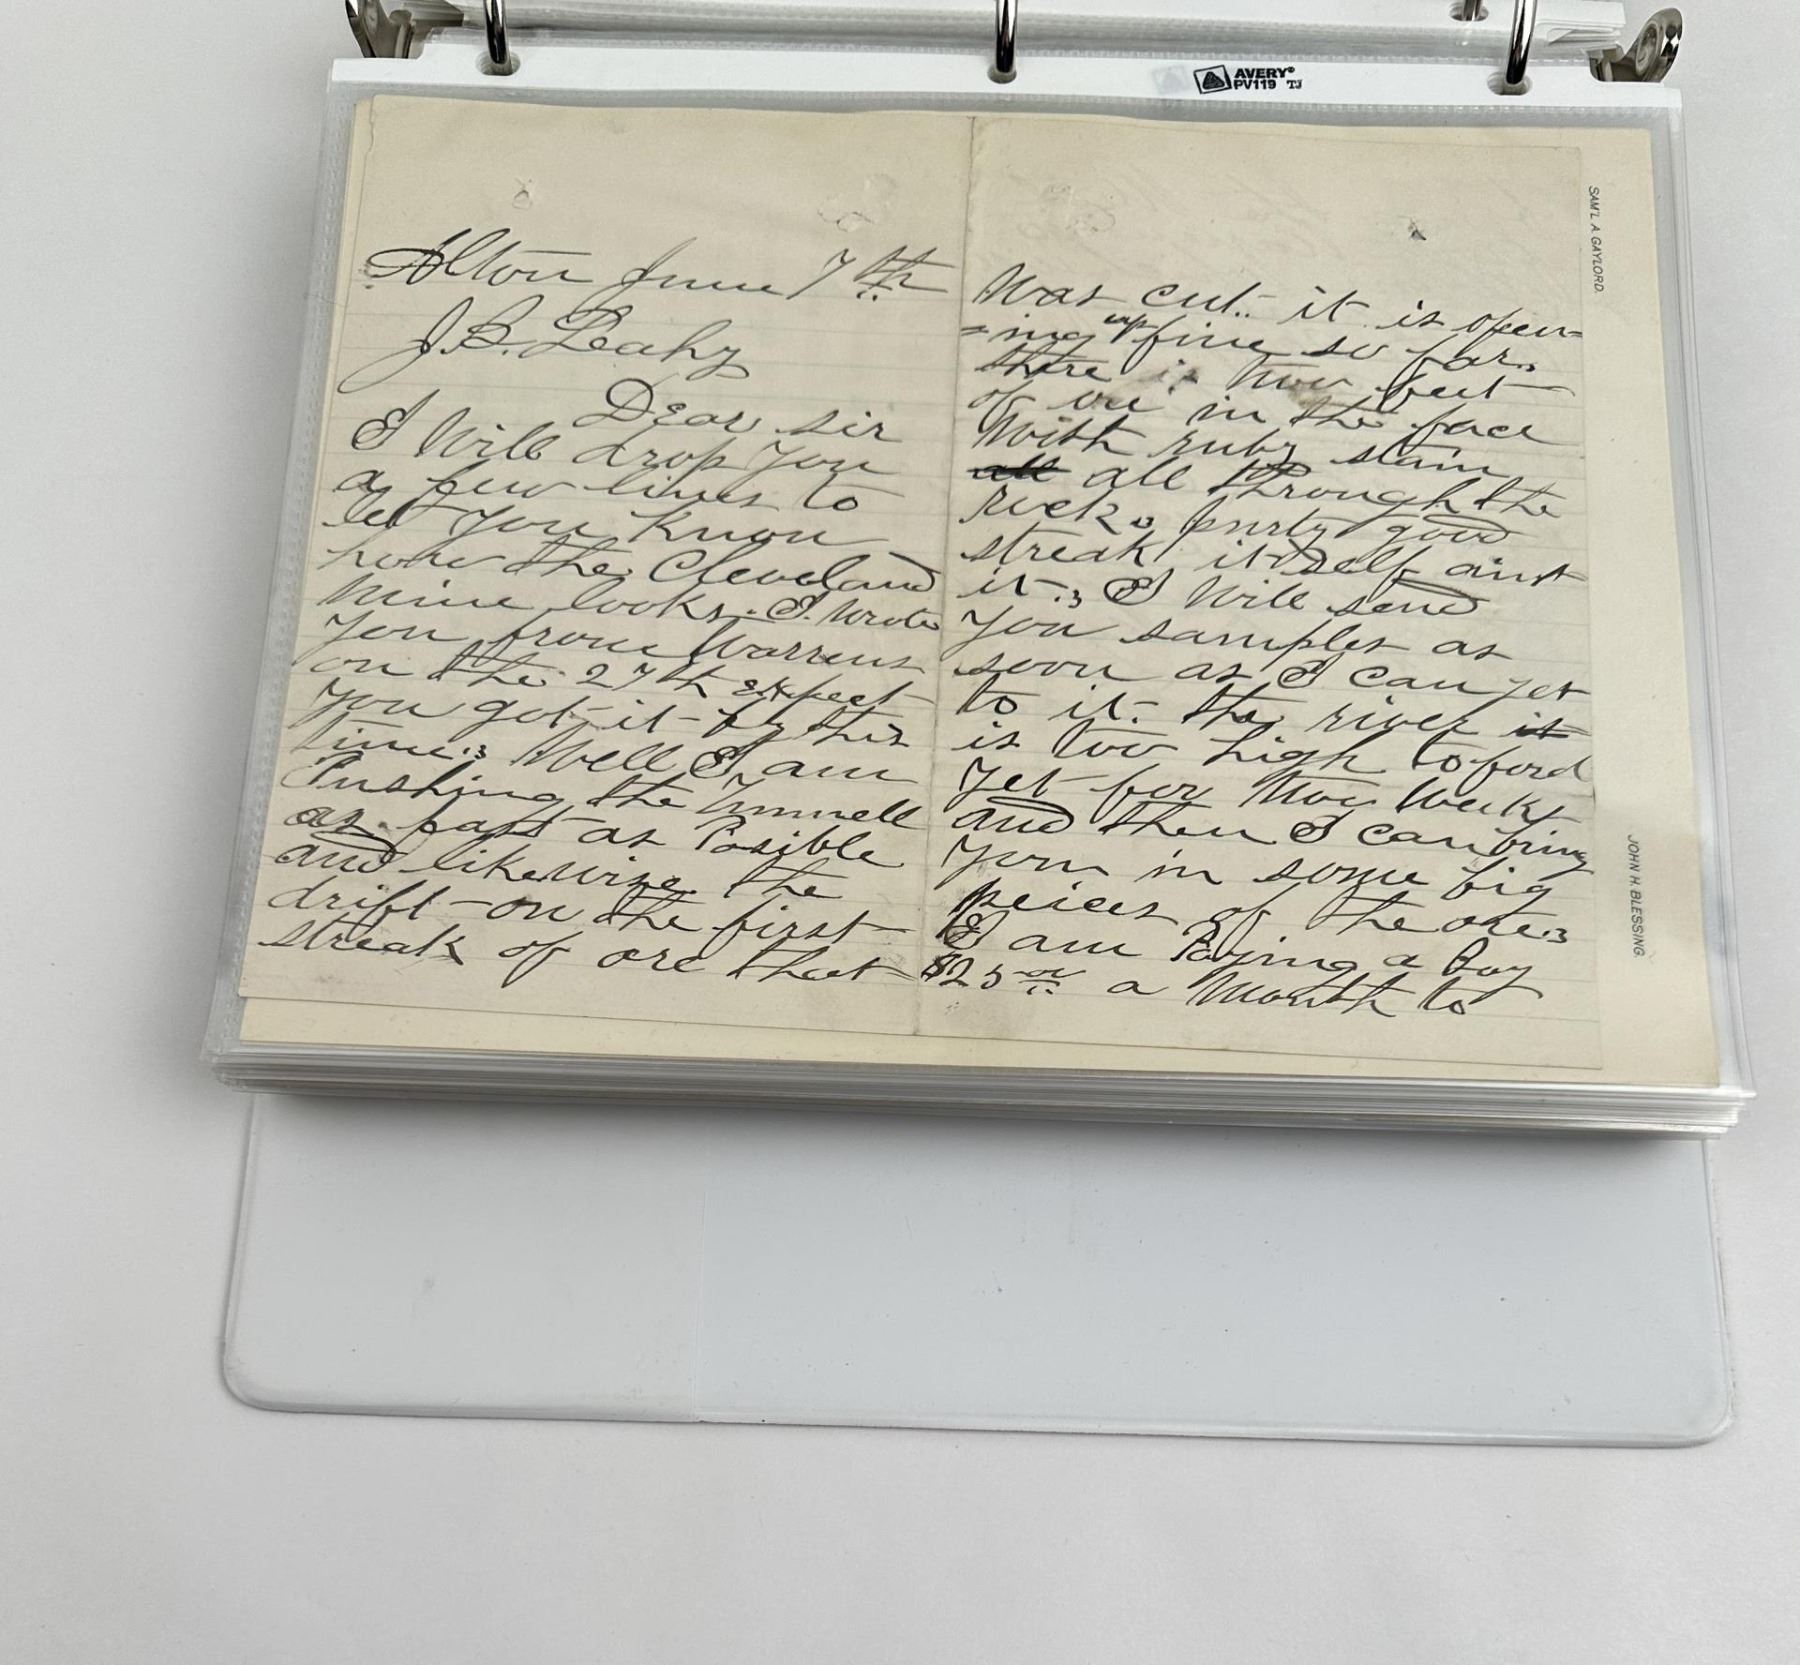 AVERY®
PV119 TJ
Alton June 7th
J. B. Leahy
Dear sir
I Will drop you
a few lines to
let you know
how the Cleveland
mine looks. I wrote
you from Warrens
on the 27th expect
you got it by this
time. Well I am
Pushing the Tunnell
as fast as Posible
and likewise the
drift on the first
streak of ore that
Was cut. it is open=
=ing up fine so far.
there is two feet
of ore in the face
With ruby stain
all all through the
rock. purty good
streak itself aint
it. I Will send
you samples as
soon as I can get
to it. the river is
is two high to ford
yet for two Weeks
and then I can bring
you in some big
peices of the ore.
I am Paying a Boy
$25 00 a Month to
SAM'L A. GAYLORD.
JOHN H. BLESSING.